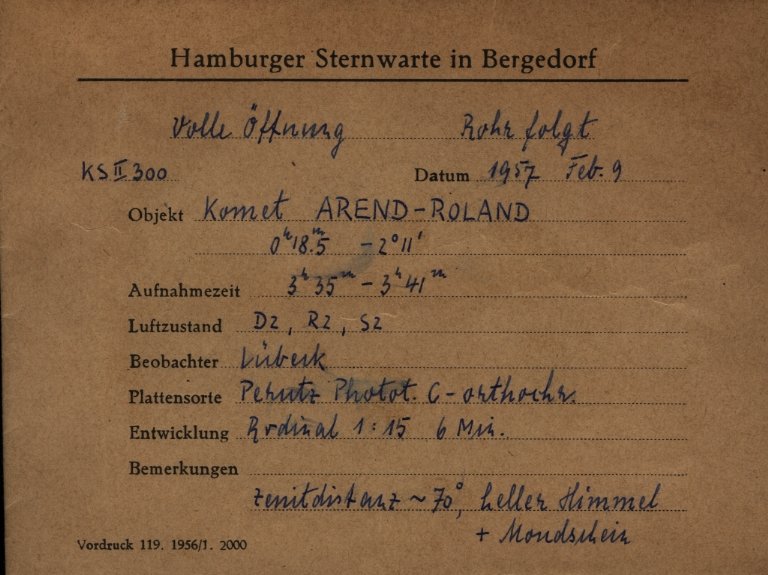 Hamburger Sternwarte in Bergedorf
Volle Öffnung Rohr folgt
KS II 300 Datum 1957 Feb. 9
Objekt Komet AREND-ROLAND
0ʰ18.ᵐ5 -2°11'
Aufnahmezeit 3ʰ35ᵐ - 3ʰ41ᵐ
Luftzustand D2, R2, S2
Beobachter Lübeck
Plattensorte Perutz Photot. C-orthochr.
Entwicklung Rodinal 1:15 6 Min.
Bemerkungen
Zenitdistanz ~70°, heller Himmel
+ Mondschein
Vordruck 119. 1956/1. 2000